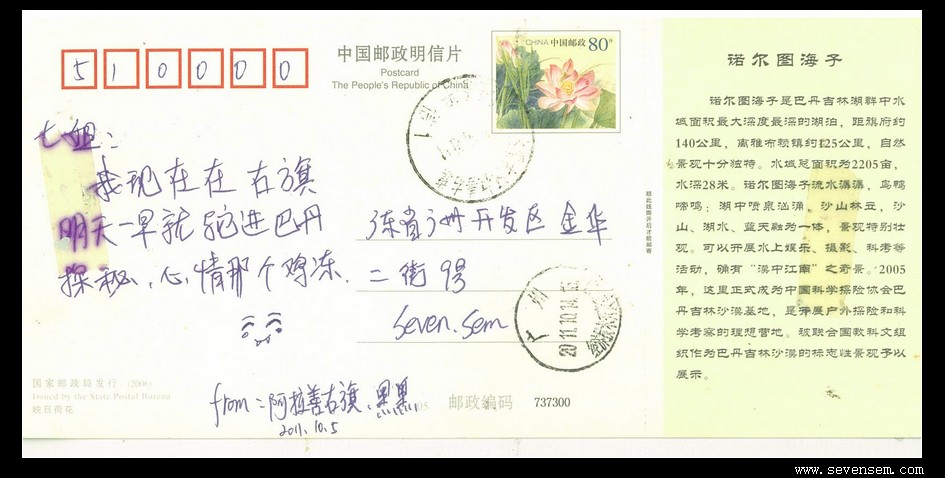 5 1 0 0 0 0
中国邮政明信片
Postcard
The People's Republic of China
CHINA 中国邮政 80分
七姐：
我现在在右旗
明天一早就能进巴丹
探秘，心情那个鸡冻.
广东省广州开发区金华
二街9号
seven.sem
广州
2011.10.14.15
from：阿拉善右旗.黑黑
2011.10.5
国家邮政局发行 (2006)
Issued by the State Postal Bureau
映日荷花
邮政编码 737300
诺尔图海子
诺尔图海子是巴丹吉林湖群中水
域面积最大深度最深的湖泊，距旗府约
140公里，离雅布赖镇约125公里，自然
景观十分独特。水域总面积为2205亩，
水深28米。诺尔图海子流水潺潺，鸟鸭
啼鸣；湖中喷泉汹涌，沙山林立，沙
山、湖水、蓝天融为一体，景观特别壮
观。可以开展水上娱乐、摄影、科考等
活动，确有“漠中江南”之奇景。2005
年，这里正式成为中国科学探险协会巴
丹吉林沙漠基地，是开展户外探险和科
学考察的理想营地。被联合国教科文组
织作为巴丹吉林沙漠的标志性景观予以
展示。
www.sevensem.com